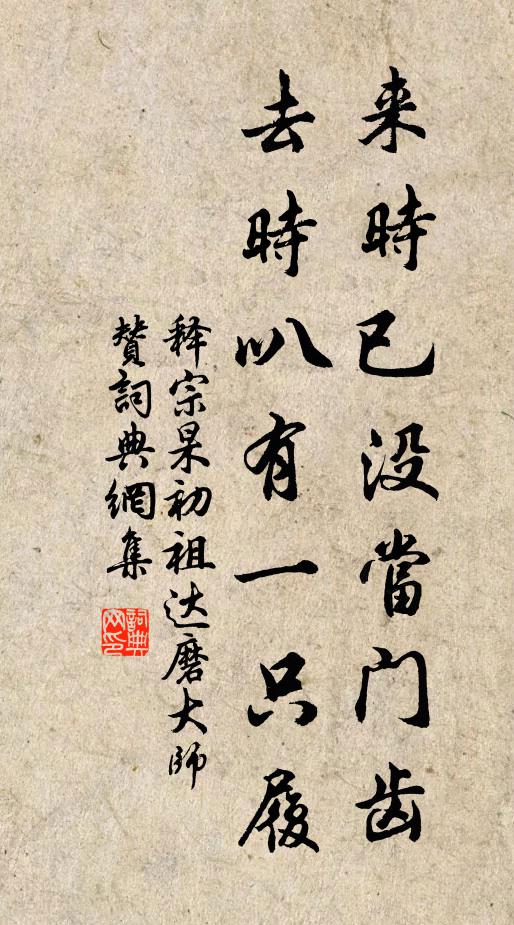 来時已没當门齿
去時叭有一只履
释宗杲初祖达磨大师
赞詞典網集
詞典网印